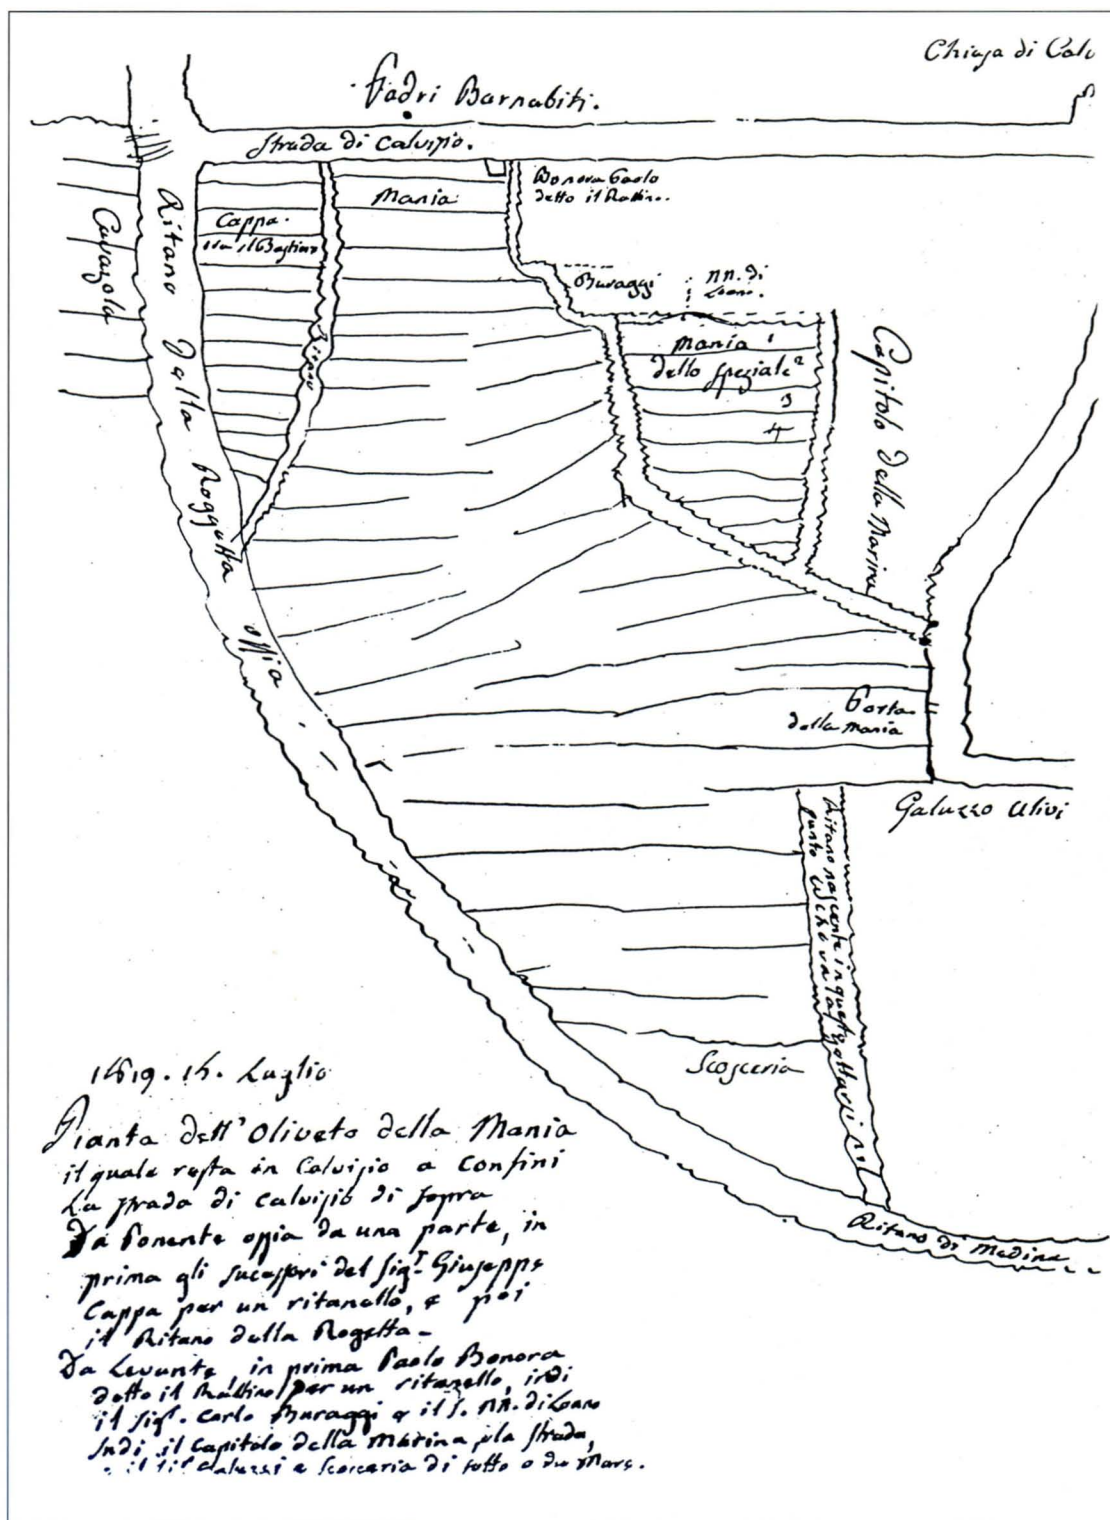 Chiesa di Calv
Padri Barnabiti.
Strada di Calvisio.
Bonora Paolo
detto il Rattino.
Mania
Cappa.
Cavazola
Ritano della Roggetta ossia
Ritano
Buraggi
NN. di
Loano.
Mania 1
dello speziale 2
3
4
Capitolo della Marina
Porta
della Mania
Galuzzo Ulivi
Ritano nascente in questo
punto
Scosceria
Ritano di Medina
15. Luglio
Pianta dell'Oliveto della Mania
il quale resta in Calvisio a Confini
La strada di Calvisio di sopra
Da Ponente ossia da una parte, in
prima gli sucessori del Sig.r Giuseppe
Cappa per un ritanello, e poi
il Ritano della Rogetta -
Da Levante, in prima Paolo Bonora
detto il Rattino per un ritanello, indi
il Sig.r Carlo Buraggi e il S. NN. di Loano
Indi il Capitolo della Marina p la strada,
Galuzzi e Scosceria di sotto o da Mare.